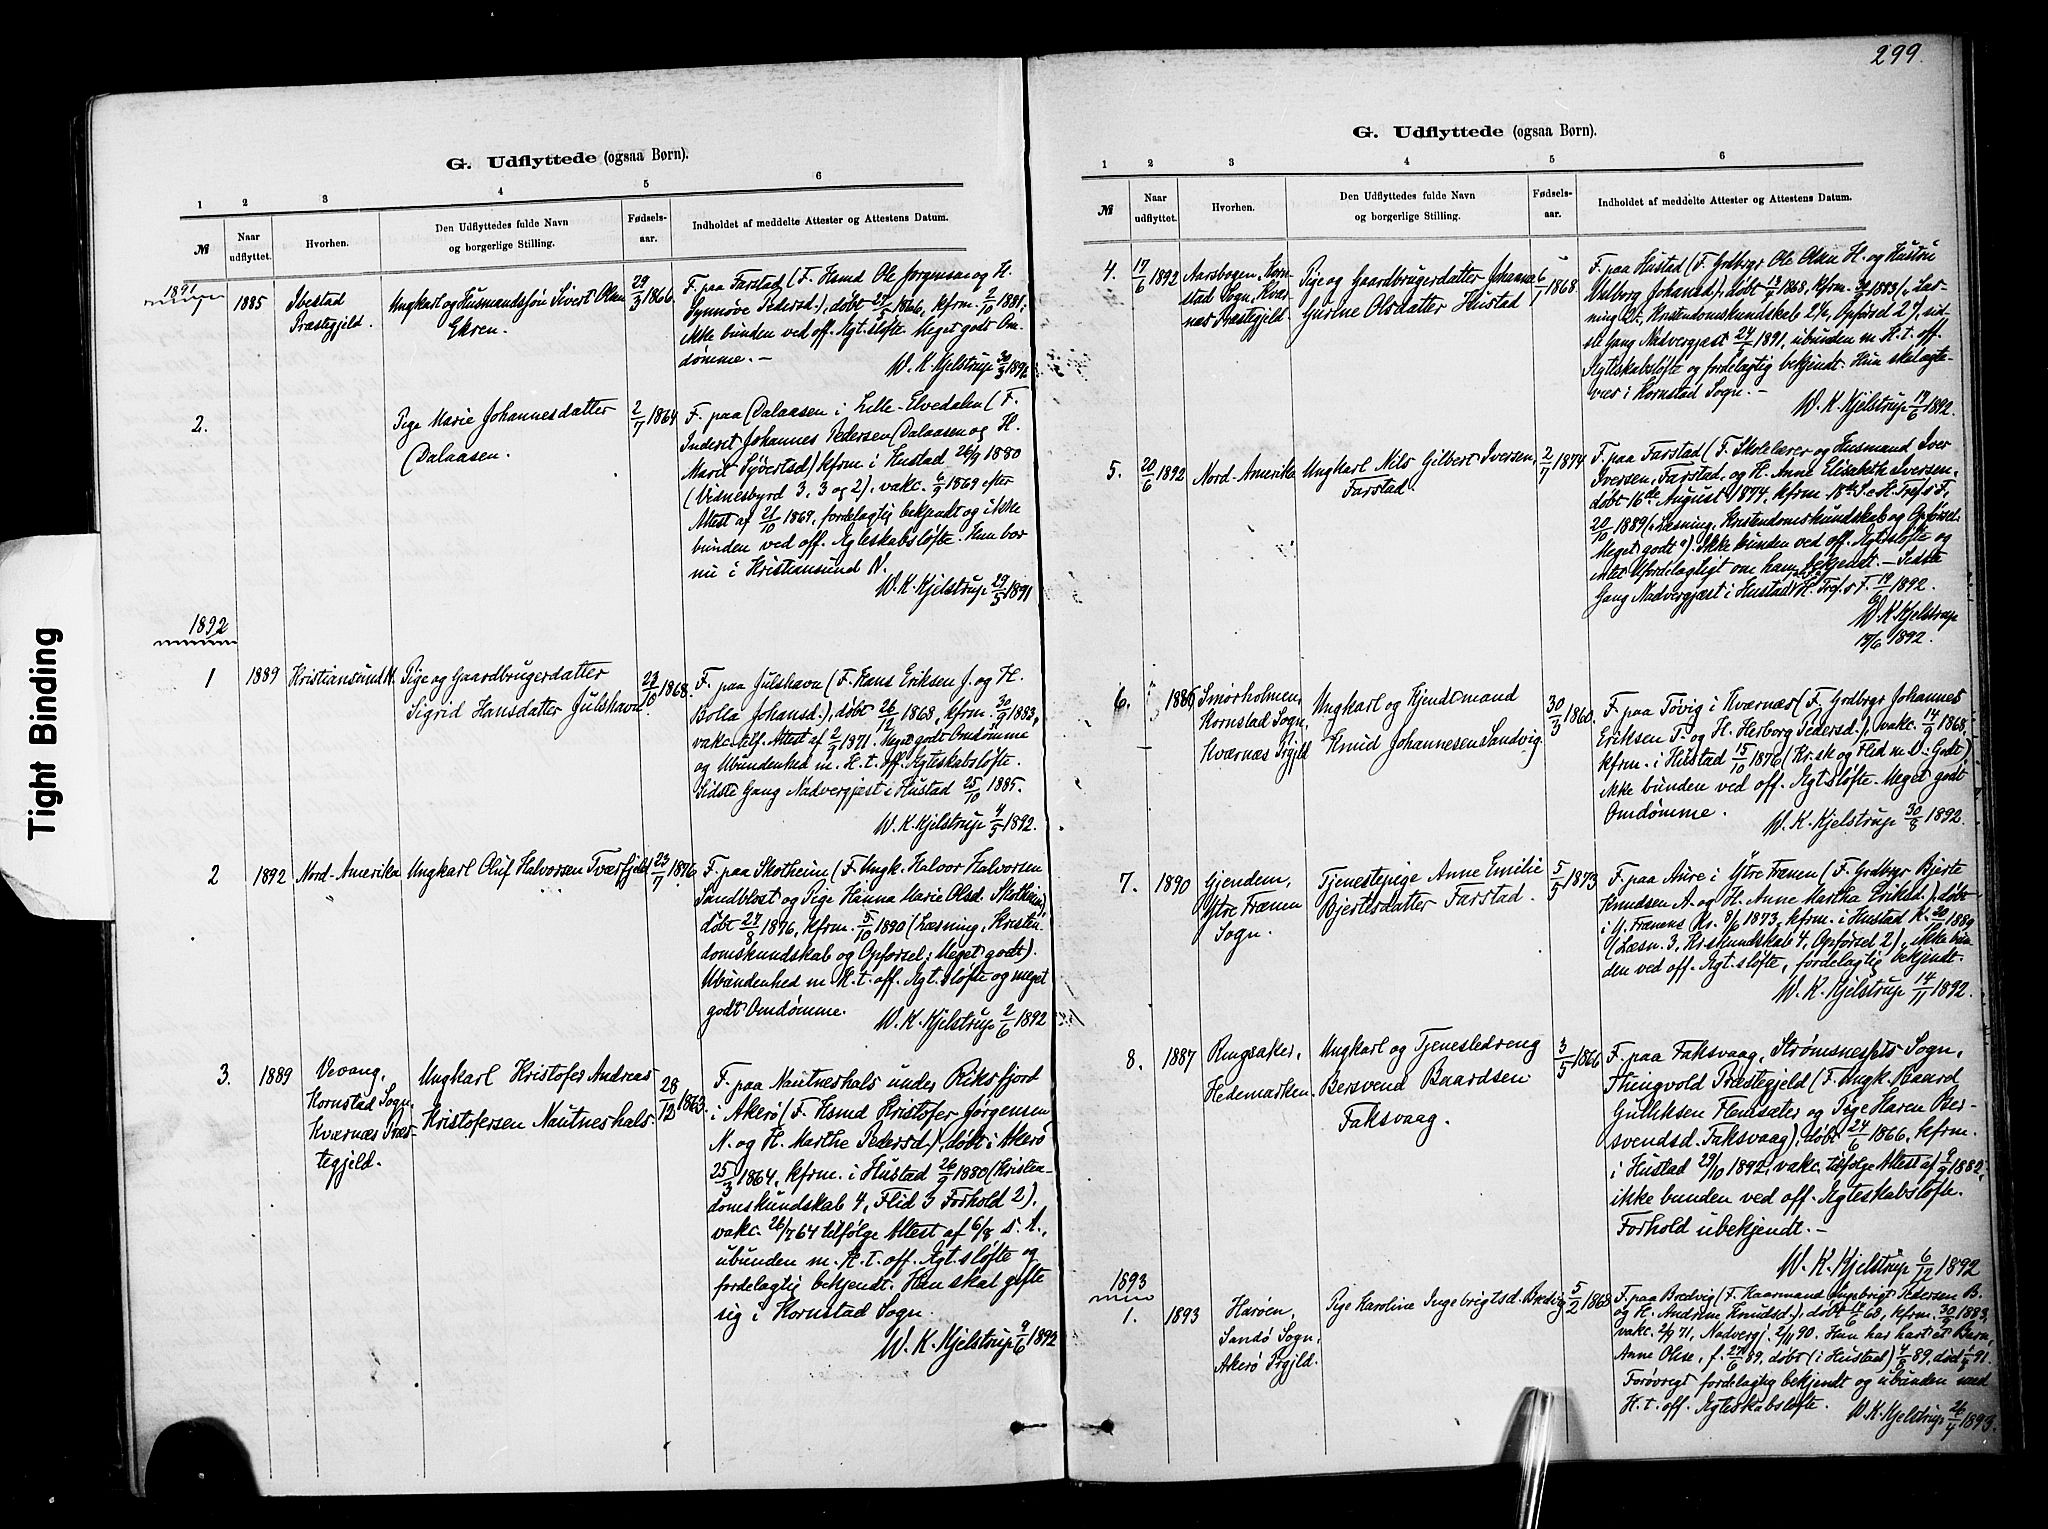 299.
Tight Binding
G. Udflyttede (ogsaa Børn).
1 2 3 4 5 6
№ Naar udflyttet. Hvorhen. Den Udflyttedes fulde Navn og borgerlige Stilling. Fødsels-aar. Indholdet af meddelte Attester og Attestens Datum.
1891
1 1885 Ibestad Præstegjeld. Ungkarl og Husmandssøn Sivert Olsen Ekren. 29/3 1866
F. paa Farstad (F. Hsmd Ole Jørgensen og H.
Synnøve Pedersd.), døbt 29/5 1866, kfrm. 2/10 1881,
ikke bunden ved off. Ægt.sløfte. Meget godt Om-
dømme. –
W. K. Kjelstrup 30/3 1892
2. Pige Marie Johannesdatter Dalaasen. 2/7 1864
F. paa Dalaasen i Lille-Elvedalen (F.
Inderst Johannes Pedersen Dalaasen og H.
Marit Syvertsd.) kfrm. i Hustad 26/9 1880
(Vidnesbyrd 3, 3 og 2), vakc. 6/9 1869 efter
Attest af 21/10 1869, fordelagtig bekjendt og ikke
bunden ved off. Ægteskabsløfte. Hun bor
nu i Kristiansund N.
W. K. Kjelstrup 29/5 1891
1892
1 1889 Kristiansund N. Pige og Gaardbrugerdatter Sigrid Hansdatter Julshavn 23/10 1868.
F. paa Julshavn (F. Hans Eriksen J. og H.
Bolla Johansd.), døbt 26/12 1868, kfrm. 30/9 1883,
vakc. tilf. Attest af 2/9 1871. Meget godt Omdømme
og Ubundenhed m. H. t. off. Ægteskabsløfte.
Sidste Gang Nadvergjæst i Hustad 25/10 1885.
W. K. Kjelstrup 4/5 1892.
2 1892 Nord-Amerika Ungkarl Oluf Halvorsen Tværfjeld 23/7 1876.
F. paa Skotheim (F. Ungk. Halvor Halvorsen
Sandblost og Pige Hanna Marie Olsd. Skotheim),
døbt 27/8 1876, kfrm. 5/10 1890 (Læsning, Kristen-
domskundskab og Opførsel: Meget godt).
Ubundenhed m. H. t. off. Ægt.sløfte og meget
godt Omdømme.
W. K. Kjelstrup 2/6 1892
3. 1889 Vevang, Kornstad Sogn, Kværnæs Præstegjeld. Ungkarl Kristofer Andreas Kristofersen Nautneshals. 28/12 1863.
F. paa Nautneshals under Riksfjord
i Akerø (F. Hsmd Kristofer Jørgensen
N. og H. Marthe Pedersd.), døbt i Akerø
25/3 1864, kfrm. i Hustad 26/9 1880 (Kristen-
domskundskab 4, Flid 3 Forhold 2),
vakc. 26/7 64 tilfølge Attest af 6/8 s. A.,
ubunden m. H. t. off. Ægt.sløfte og
fordelagtig bekjendt. Han skal gifte
sig i Kornstad Sogn.
W. K. Kjelstrup 9/6 1892
G. Udflyttede (ogsaa Børn).
1 2 3 4 5 6
№ Naar udflyttet. Hvorhen. Den Udflyttedes fulde Navn og borgerlige Stilling. Fødsels-aar. Indholdet af meddelte Attester og Attestens Datum.
4. 17/6 1892 Aarsbogen, Kornstad Sogn, Kværnæs Præstegjeld. Pige og Gaardbrugerdatter Johanne Gurine Olsdatter Hustad 6/7 1868
F. paa Hustad (F. Grdbrgr Ole Olsen H. og Hustru
Valborg Johansd.), døbt 13/9 1868, kfrm. 30/9 1883 (Læs-
ning 2+, Kristendomskundskab 2½, Opførsel 2), sid-
ste Gang Nadvergjæst 1891, ubunden m. H. t. off.
Ægteskabsløfte og fordelagtig bekjendt. Hun skal ægte-
vies i Kornstad Sogn. –
W. K. Kjelstrup 17/6 1892.
5. 20/6 1892 Nord-Amerika Ungkarl Nils Gilbert Iversen Farstad. 2/7 1874
F. paa Farstad (F. Skolelærer og Husmand Iver
Iversen Farstad, og H. Anne Elisabeth Iversen,
døbt 16de August 1874, kfrm. 18de S. e. H. Tref.s F.,
20/10 1889 (Læsning, Kristendomskundskab og Opførsel:
"Meget godt"). Ikke bunden ved off. Ægt.sløfte og
intet Ufordelagtigt om ham bekjendt. – Sidste
Gang Nadvergjæst i Hustad H. Tref.s F. 1892.
W. K. Kjelstrup
17/6 1892.
6. 1886 Smørholmen, Kornstad Sogn, Kværnæs Prgjld Ungkarl og Kjendtmand Knud Johannesen Sandvig. 30/3 1860.
F. paa Tøvig i Kværnæs (F. Grdbrgr Johannes
Eriksen T. og H. Herborg Pedersd.), vakc. 14/9 1868,
kfrm. i Hustad 15/10 1876 (Kr.sk og Flid m. V: Godt)
ikke bunden ved off. Ægt.sløfte. Meget godt
Omdømme. W. K. Kjelstrup 30/8 1892.
7. 1890 Gjendem, Ytre Frænen Sogn. Tjenestepige Anne Emilie Bjertesdatter Farstad. 5/5 1873
F. paa Aure i Ytre Frænen (F. Grdbrgr Bjerte
Knudsen A. og H. Anne Martha Eriksd.), døbt
i Y. Frænens Kr. 8/6 1873, kfrm. i Hustad K. 20/10 1889
(Læsn. 3, Kr.skundskab 4, Opførsel 2), ikke bun-
den ved off. Ægt.sløfte, fordelagtig bekjendt.
W. K. Kjelstrup 14/11 1892.
8. 1887 Ringsaker, Hedemarken. Ungkarl og Tjenestedreng Bersvend Baardsen Faksvaag. 3/5 1866
F. paa Faksvaag, Strømsnessets Sogn,
Thingvold Præstegjeld (F. Ungk. Baard
Gulliksen Flemsæter og Pige Karen Ber-
svendsd. Faksvaag), døbt 24/6 1866, kfrm.
i Hustad 29/10 1892, vakc. tilfølge Attest af 9/9 1882,
ikke bunden ved off. Ægteskabsløfte.
Forhold ubekjendt. –
W. K. Kjelstrup 6/12 1892
1893
1. 1893 Harøen, Sandø Sogn, Akerø Prgjld. Pige Karoline Ingebrigtsd. Bredvig 5/2 1868
F. paa Bredvig (F. Kaarmand Ingebrigt Pedersen B.
og H. Andrine Knudsd.), døbt 68, kfrm. 30/9 1883,
vakc. 2/9 71, Nadvergj. 2/11 90. Hun har havt et Barn,
Anne Oline, f. 27/6 89, døbt (i Hustad) 4/8 89, død 91.
Forøvrigt fordelagtig bekjendt og ubunden med
H. t. off. Ægteskabsløfte. W. K. Kjelstrup 26/4 1893.